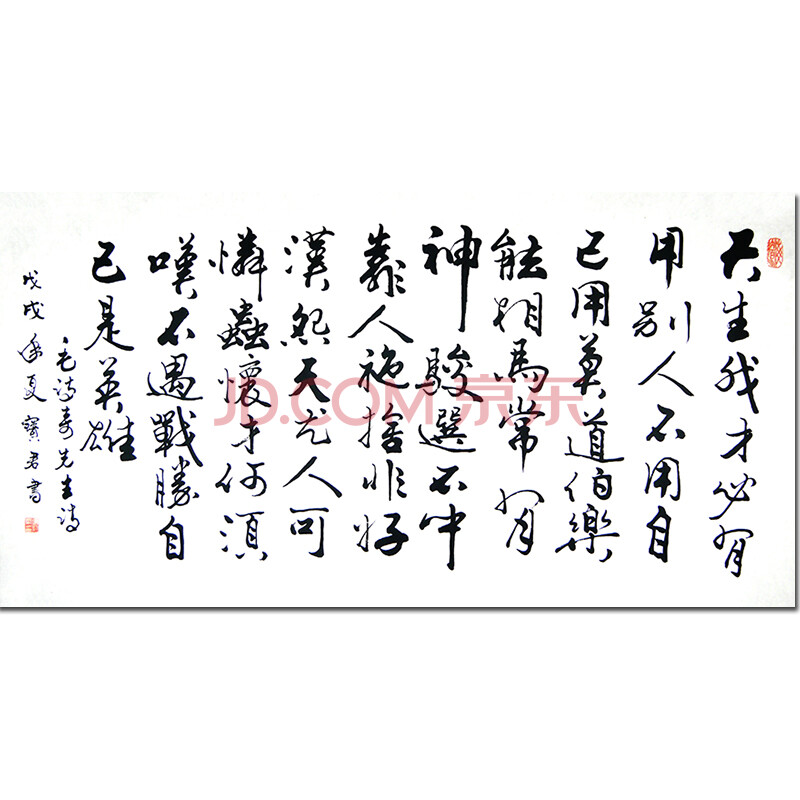 天生我才必有
用别人不用自
己用莫道伯樂
能相馬常有
神駿選不中
靠人施捨非好
漢怨天尤人可
憐蟲懷才何須
嘆不遇戰勝自
己是英雄
毛诗奇先生诗
戊戌年夏寶君書
JD.COM 京东